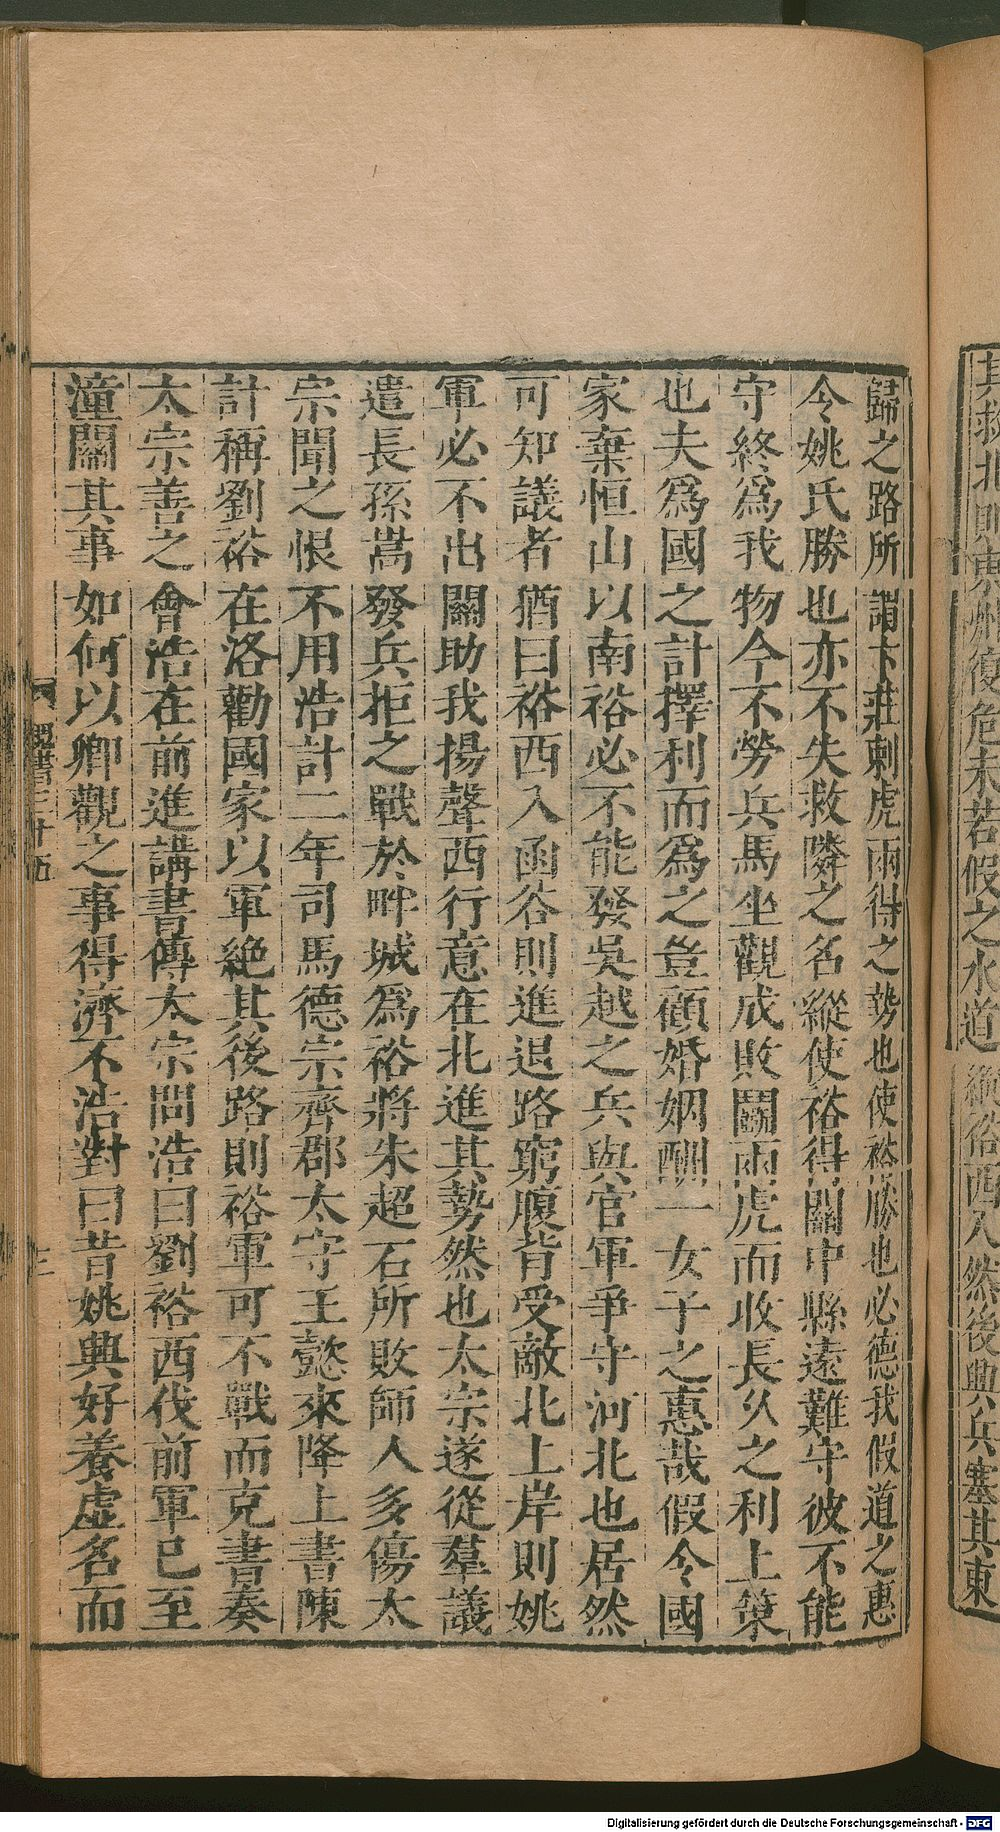 其救北則東州復危未若假之水道縱裕西入然後興兵塞其東
歸之路所謂卞莊刺虎兩得之勢也使裕勝也必德我假道之惠
令姚氏勝也亦不失救隣之名縱使裕得關中縣遠難守彼不能
守終爲我物今不勞兵馬坐觀成敗鬭兩虎而收長久之利上策
也夫爲國之計擇利而爲之豈顧婚姻酬一女子之惠哉假令國
家棄恒山以南裕必不能發吳越之兵與官軍爭守河北也居然
可知議者猶曰裕西入函谷則進退路窮腹背受敵北上岸則姚
軍必不出關助我揚聲西行意在北進其勢然也太宗遂從羣議
遣長孫嵩發兵拒之戰於畔城爲裕將朱超石所敗師人多傷太
宗聞之恨不用浩計二年司馬德宗齊郡太守王懿來降上書陳
計稱劉裕在洛勸國家以軍絶其後路則裕軍可不戰而克書奏
太宗善之會浩在前進講書傳太宗問浩曰劉裕西伐前軍已至
潼關其事如何以卿觀之事得濟不浩對曰昔姚興好養虛名而
魏書三十五
Digitalisierung gefördert durch die Deutsche Forschungsgemeinschaft - DFG